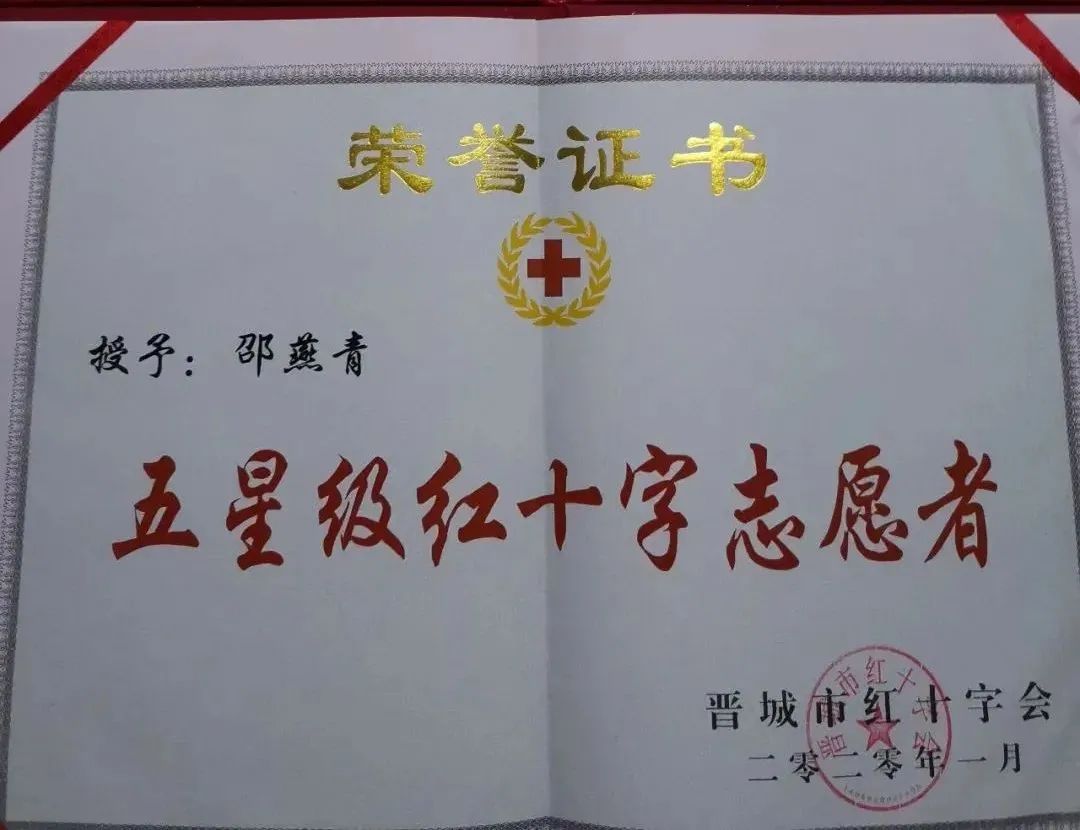 荣誉证书
授予：邵燕青
五星级红十字志愿者
晋城市红十字会
二零二零年一月